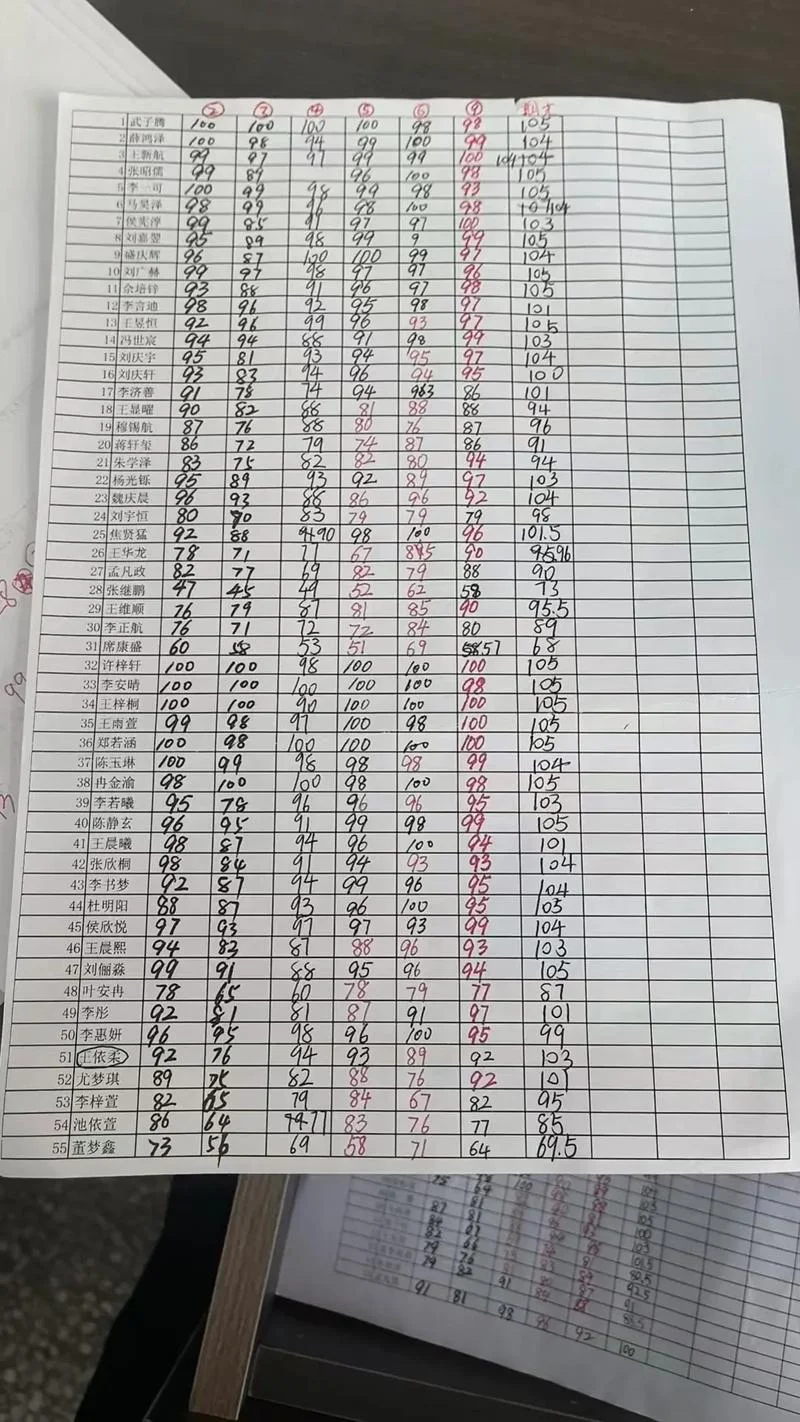 ② ③ ④ ⑤ ⑥ ⑨ 期末
1 武子腾 100 100 100 100 98 98 105
2 薛鸿泽 100 98 94 99 100 99 104
3 王新航 99 97 97 99 99 100 104
4 张昭儒 99 89 96 100 98 105
5 李一可 100 99 98 99 98 93 105
6 马昊泽 98 99 96 98 100 98 104
7 侯宪淳 99 85 91 97 97 100 103
8 刘嘉翌 95 89 98 99 9 99 105
9 盛庆辉 96 87 100 100 99 97 104
10 刘广赫 99 97 98 97 97 96 105
11 佘培锌 93 88 91 96 97 98 105
12 李言迪 98 96 92 95 98 97 101
13 王昱恒 92 96 99 96 93 97 105
14 冯世宸 94 94 88 91 98 99 103
15 刘庆宇 95 81 93 94 95 97 104
16 刘庆轩 93 83 94 96 94 95 100
17 李济善 91 78 74 94 963 86 101
18 王显曜 90 82 88 81 88 88 94
19 穆锡航 87 76 88 80 76 87 96
20 蒋轩玺 86 72 79 74 87 86 91
21 朱学泽 83 75 82 82 80 94 94
22 杨光铄 95 89 93 92 89 97 103
23 魏庆晨 96 93 88 86 96 92 104
24 刘宇恒 80 90 83 79 79 79 98
25 焦贤猛 92 88 90 98 100 96 101.5
26 王华龙 78 71 77 67 90 96
27 孟凡政 82 77 69 82 79 88 90
28 张继鹏 47 45 49 52 62 58 73
29 王维顺 76 79 87 81 85 90 95.5
30 李正航 76 71 72 72 84 80 89
31 席康盛 60 58 53 51 69 57 68
32 许梓轩 100 100 98 100 100 100 105
33 李安晴 100 100 100 100 100 98 105
34 王梓桐 100 100 90 100 100 100 105
35 王雨萱 99 98 97 100 98 100 105
36 郑若涵 100 98 100 100 100 100 105
37 陈玉琳 100 99 98 98 98 99 104
38 冉金渝 98 100 100 98 100 98 105
39 李若曦 95 78 96 96 96 95 103
40 陈静玄 96 95 91 99 98 99 105
41 王晨曦 98 87 94 96 100 94 101
42 张欣桐 98 84 91 94 93 93 104
43 李书梦 92 87 94 99 96 95 104
44 杜明阳 88 87 93 96 100 95 105
45 侯欣悦 97 93 97 97 93 99 104
46 王晨熙 94 83 87 88 96 93 103
47 刘俪淼 99 91 88 95 96 94 105
48 叶安冉 78 65 60 78 79 77 87
49 李彤 92 81 81 87 91 97 101
50 李惠妍 96 95 98 96 100 95 99
51 王依柔 92 76 94 93 89 92 103
52 尤梦琪 89 75 82 88 76 92 101
53 李梓萱 82 65 79 84 67 82 95
54 池依萱 86 64 77 83 76 77 85
55 董梦鑫 73 56 69 58 71 64 69.5
91 81 91
93 86 92 100